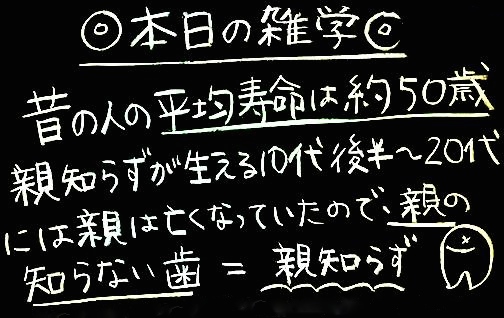 ◎本日の雑学◎
昔の人の平均寿命は約50歳
親知らずが生える10代後半～20代
には親は亡くなっていたので、親の
知らない歯 = 親知らず